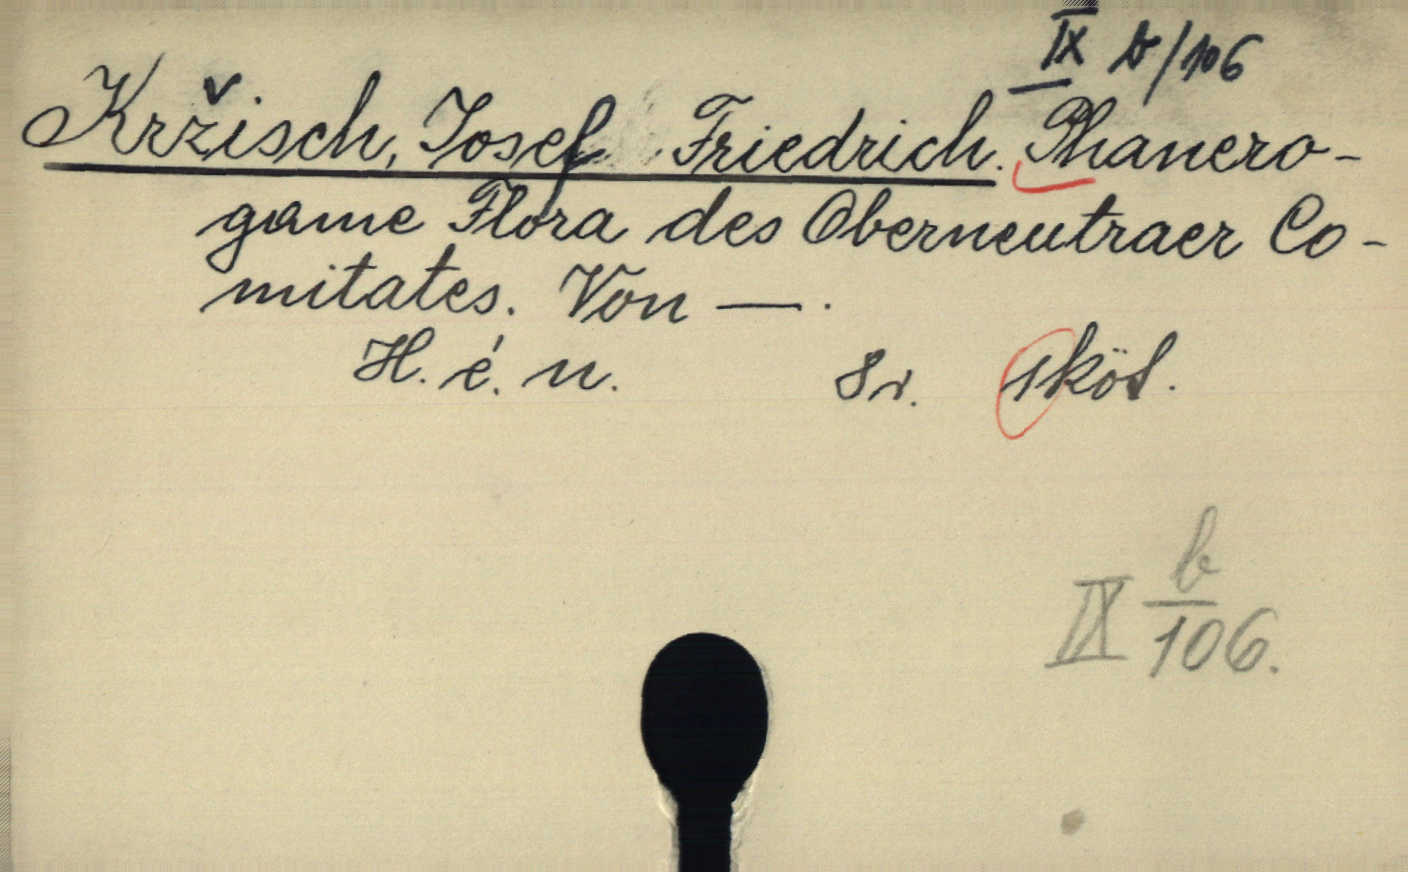 IX b/106
Kržisch, Josef Friedrich. Phanero-
game Flora des Oberneutraer Co-
mitates. Von —.
H. é. n. 8r. 1köt.
IX b/106.